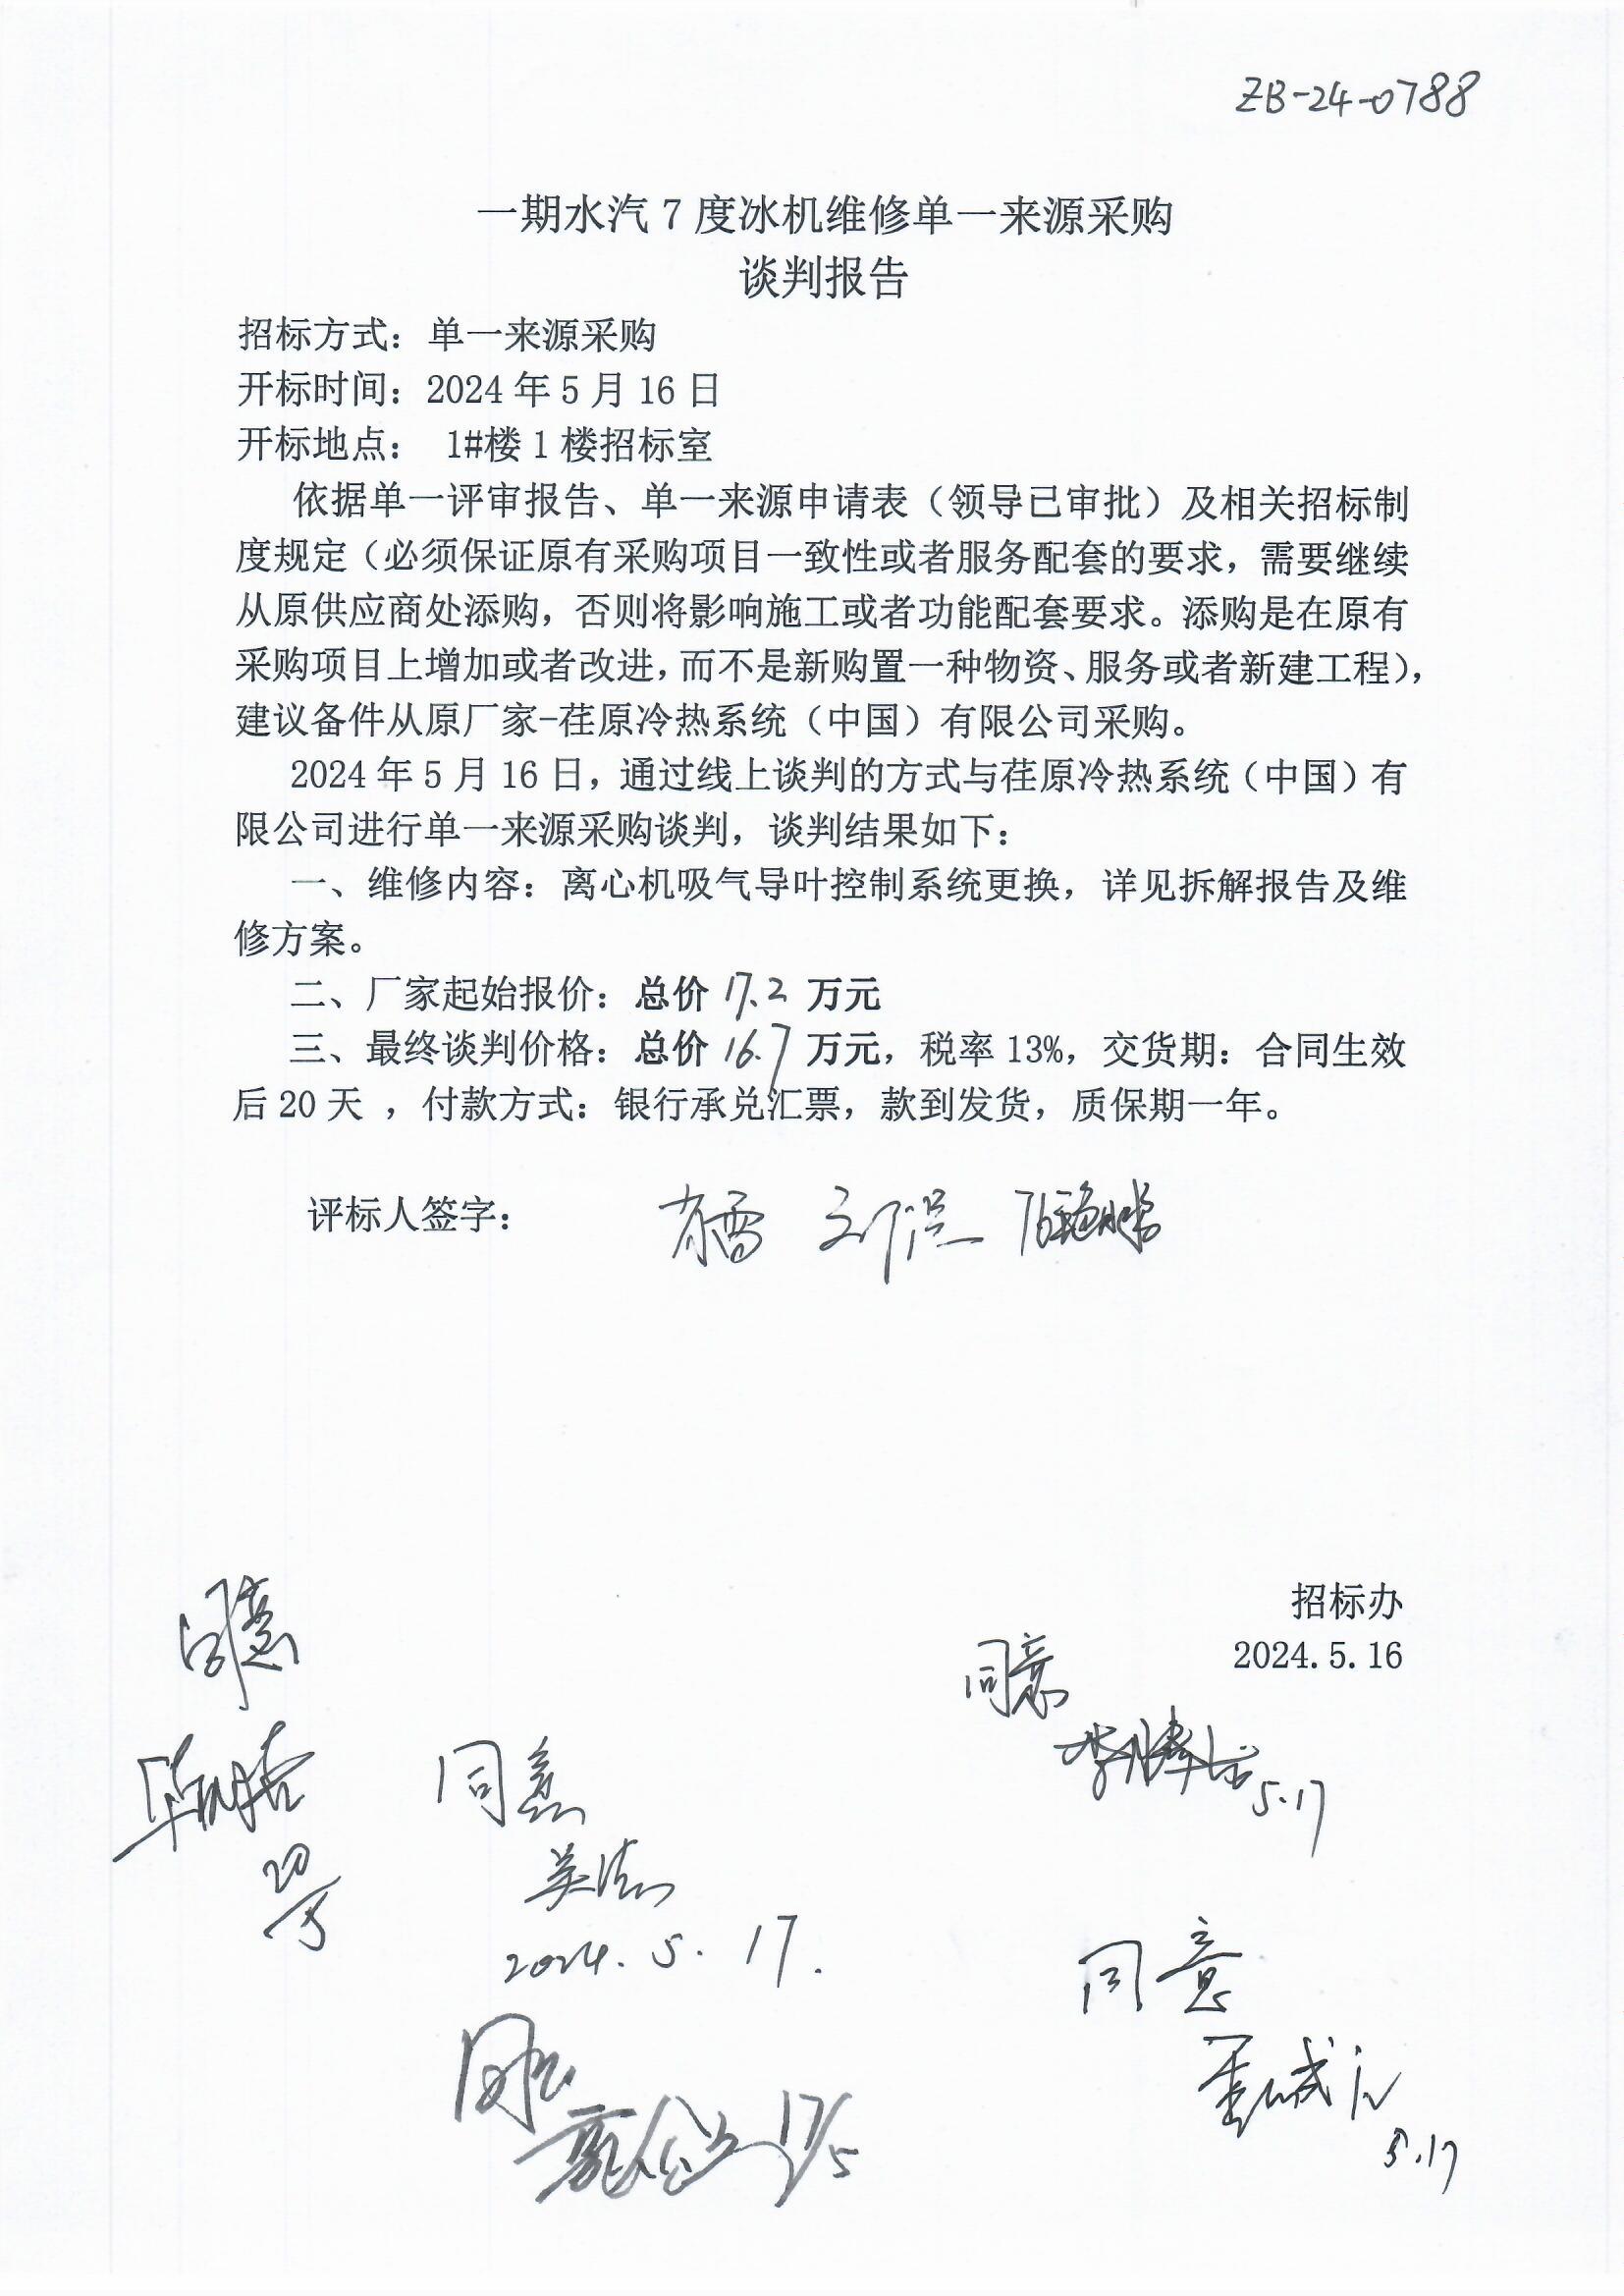 ZB-24-0788
一期水汽 7 度冰机维修单一来源采购
谈判报告
招标方式：单一来源采购
开标时间：2024 年 5 月 16 日
开标地点： 1#楼 1 楼招标室
依据单一评审报告、单一来源申请表（领导已审批）及相关招标制
度规定（必须保证原有采购项目一致性或者服务配套的要求，需要继续
从原供应商处添购，否则将影响施工或者功能配套要求。添购是在原有
采购项目上增加或者改进，而不是新购置一种物资、服务或者新建工程），
建议备件从原厂家-荏原冷热系统（中国）有限公司采购。
2024 年 5 月 16 日，通过线上谈判的方式与荏原冷热系统（中国）有
限公司进行单一来源采购谈判，谈判结果如下：
一、维修内容：离心机吸气导叶控制系统更换，详见拆解报告及维
修方案。
二、厂家起始报价：总价 17.2 万元
三、最终谈判价格：总价 16.7 万元，税率 13%，交货期：合同生效
后 20 天 ，付款方式：银行承兑汇票，款到发货，质保期一年。
评标人签字：
招标办
2024.5.16
同意
同意
5.17
同意
2024.5.17.
同意
5.17
同意
17/5